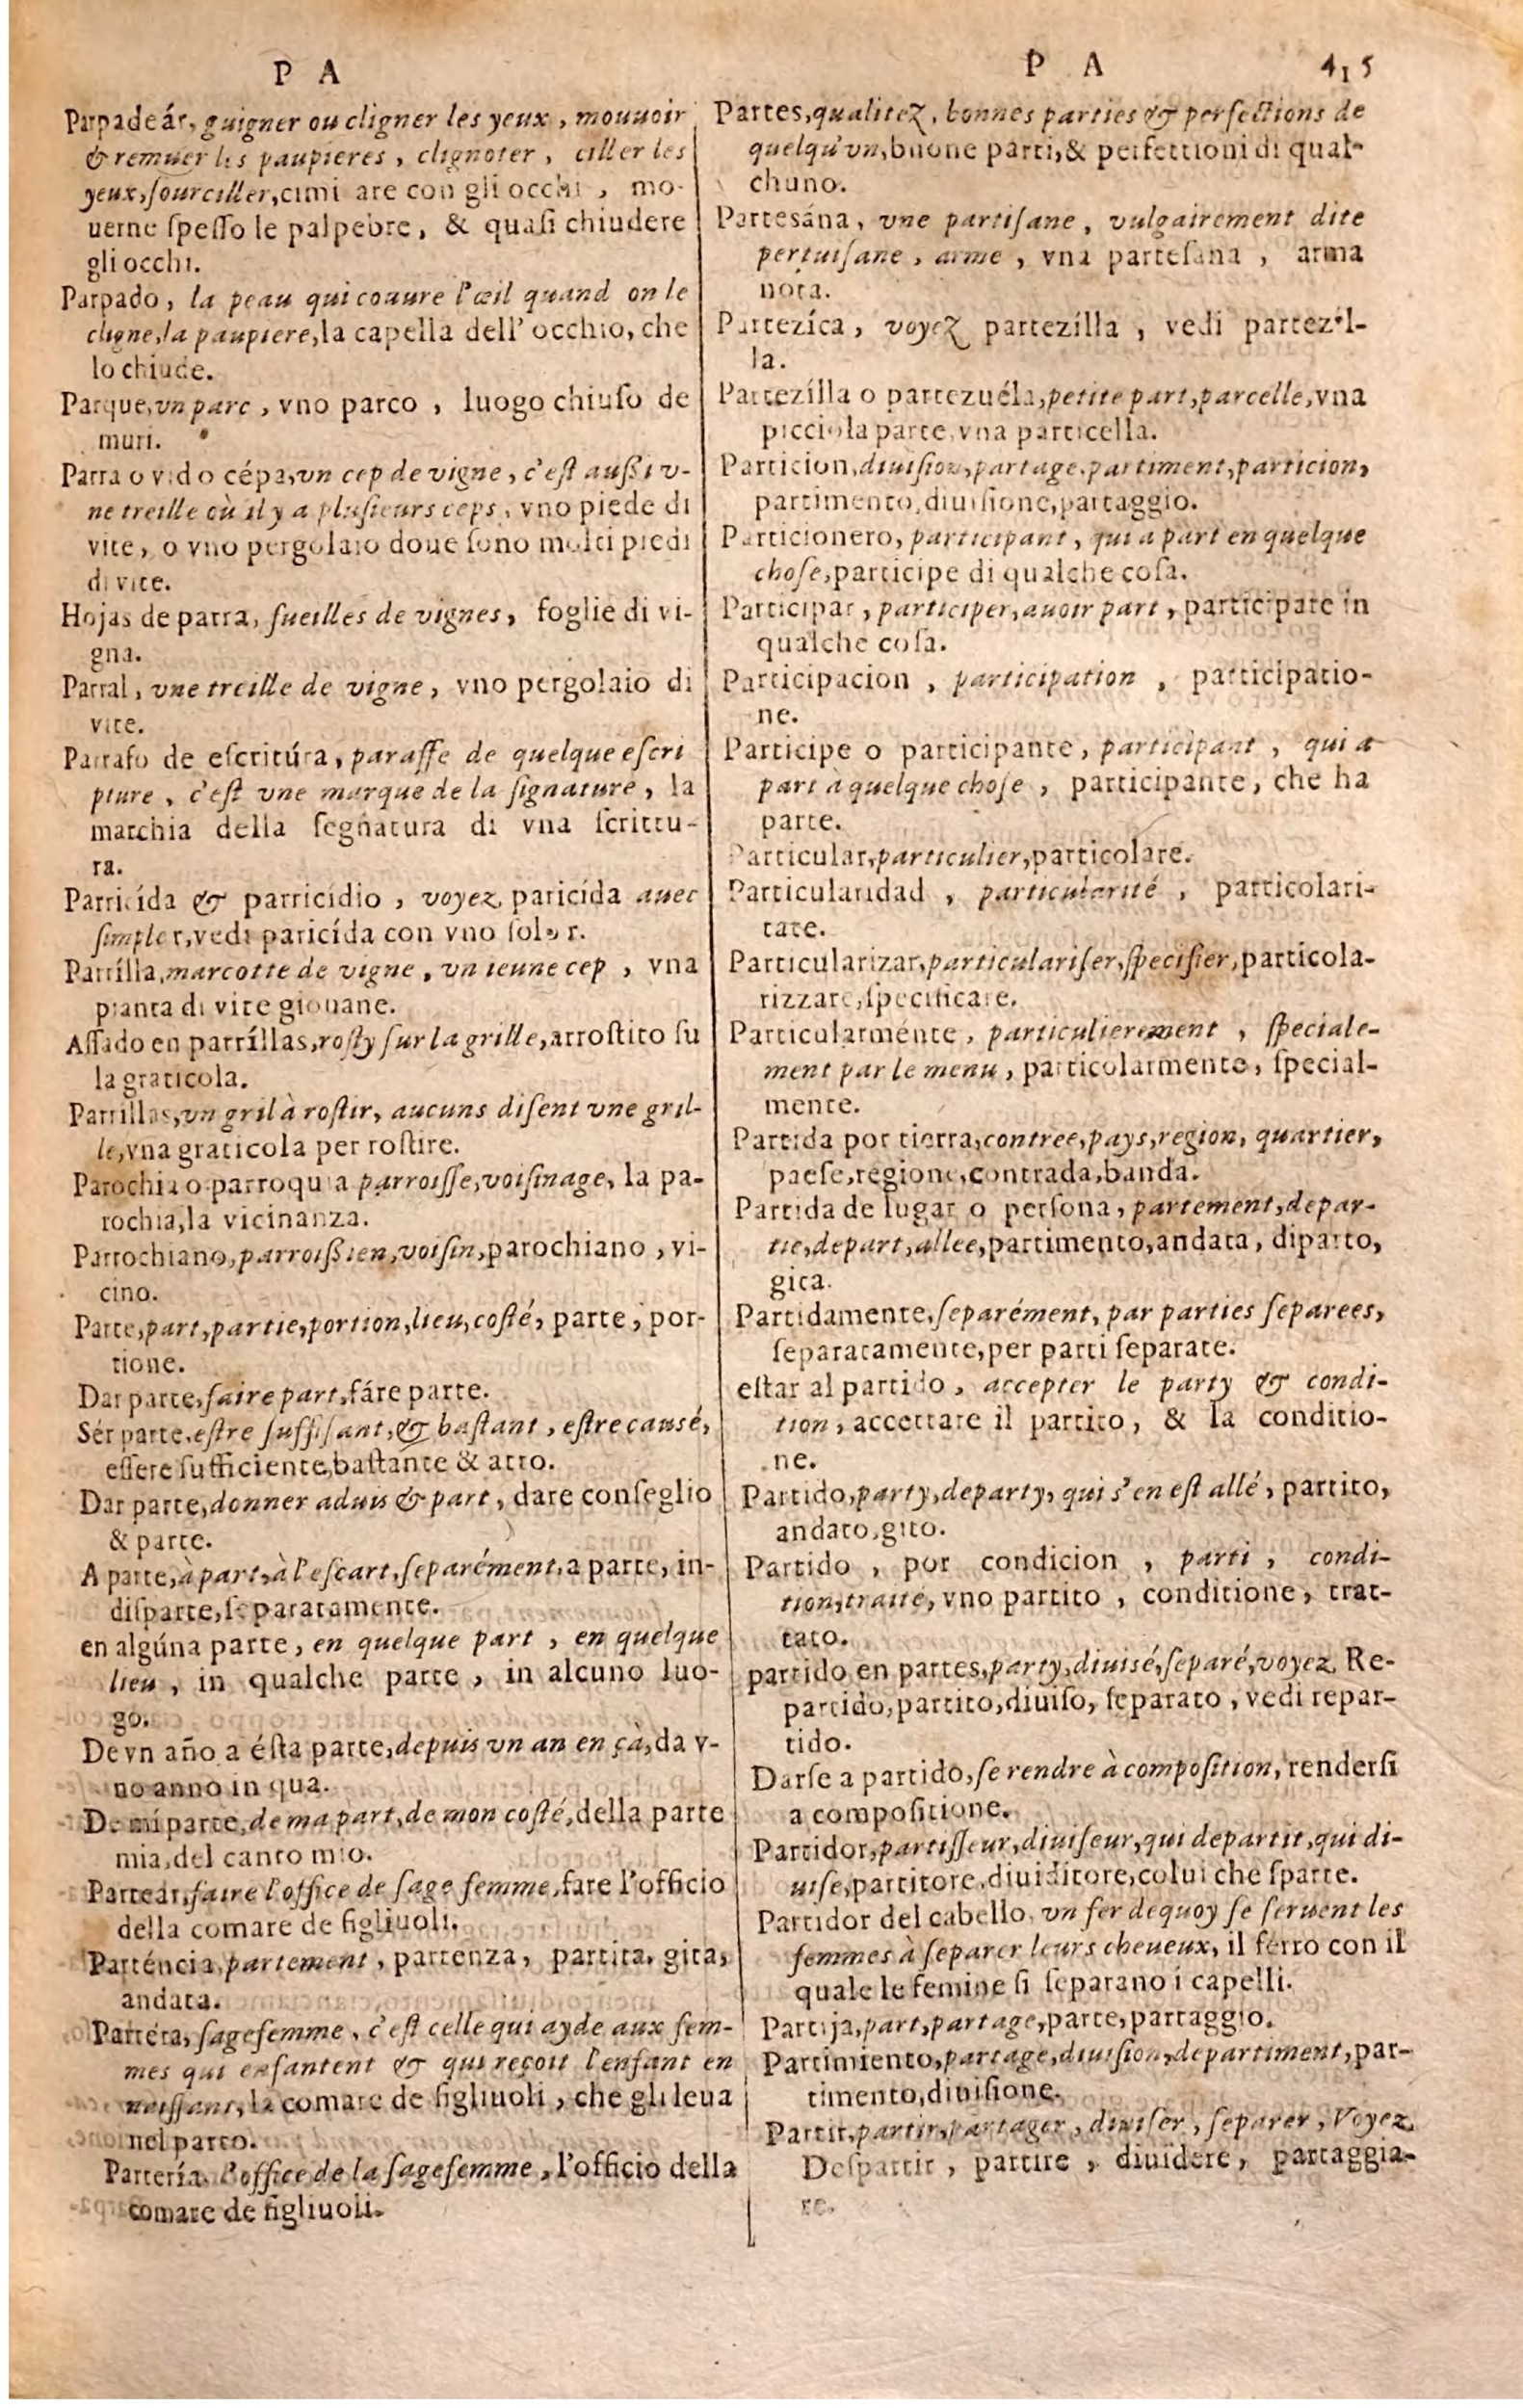 P A
Parpadeár, guigner ou cligner les yeux, mouuoir
& remuer les paupieres, clignoter, ciller les
yeux, ſourciller, cimi are con gli occhi, mo-
uerne ſpeſſo le palpebre, & quaſi chiudere
gli occhi.
Parpado, la peau qui couure l'œil quand on le
cligne, la paupiere, la capella dell' occhio, che
lo chiude.
Parque, vn parc, vno parco, luogo chiuſo de
muri.
Parra o vid o cépa, vn cep de vigne, c'eſt auſsi v-
ne treille où il y a pluſieurs ceps, vno piede di
vite, o vno pergolaio doue ſono molti piedi
di vite.
Hojas de parra, fueilles de vignes, foglie di vi-
gna.
Parral, vne treille de vigne, vno pergolaio di
vite.
Parrafo de eſcritúra, paraffe de quelque eſcri
pture, c'eſt vne marque de la ſignature, la
marchia della ſegnatura di vna ſcrittu-
ra.
Parricída & parricidio, voyez paricída auec
ſimple r, vedi paricída con vno ſolo r.
Parrílla, marcotte de vigne, vn ieune cep, vna
pianta di vite giouane.
Aſſado en parríllas, roſty ſur la grille, arroſtito ſu
la graticola.
Parrillas, vn gril à roſtir, aucuns diſent vne gril-
le, vna graticola per roſtire.
Parochia o parroquia parroiſſe, voiſinage, la pa-
rochia, la vicinanza.
Parrochiano, parroiſsien, voiſin, parochiano, vi-
cino.
Parte, part, partie, portion, lieu, coſté, parte, por-
tione.
Dar parte, faire part, fáre parte.
Sér parte, eſtre ſuffiſant, & baſtant, eſtre cauſé,
eſſere ſufficiente, baſtante & atto.
Dar parte, donner aduis & part, dare conſeglio
& parte.
A parte, à part, à l'eſcart, ſeparément, a parte, in-
diſparte, ſeparatamente.
en algúna parte, en quelque part, en quelque
lieu, in qualche parte, in alcuno luo-
go.
De vn año a éſta parte, depuis vn an en çà, da v-
no anno in qua.
De mí parte, de ma part, de mon coſté, della parte
mia, del canto mio.
Partear, faire l'office de ſage femme, fare l'officio
della comare de figliuoli.
Parténcia, partement, partenza, partita, gita,
andata.
Partéra, ſage femme, c'eſt celle qui ayde aux fem-
mes qui enfantent & qui reçoit l'enfant en
naiſſant, la comare de figliuoli, che gli leua
nel parto.
Partería, l'office de la ſage femme, l'officio della
comare de figliuoli.
P A 415
Partes, qualitez, bonnes parties & perfections de
quelqu'vn, buone parti, & perfettioni di qual-
chuno.
Partesána, vne partiſane, vulgairement dite
pertuiſane, arme, vna parteſana, arma
nota.
Partezíca, voyez partezílla, vedi partezil-
la.
Partezílla o partezuéla, petite part, parcelle, vna
picciola parte, vna particella.
Particion, diuiſion, partage, partiment, particion,
partimento, diuiſione, partaggio.
Particionero, participant, qui a part en quelque
choſe, participe di qualche coſa.
Participar, participer, auoir part, participare in
qualche coſa.
Participacion, participation, participatio-
ne.
Participe o participante, participant, qui a
part à quelque choſe, participante, che ha
parte.
Particular, particulier, particolare.
Particularidad, particularité, particolari-
tate.
Particularizar, particulariſer, ſpecifier, particola-
rizzare, ſpecificare.
Particularménte, particulierement, ſpeciale-
ment par le menu, particolarmente, ſpecial-
mente.
Partida por tierra, contree, pays, region, quartier,
paeſe, regione, contrada, banda.
Partida de lugar o perſona, partement, depar-
tie, depart, allee, partimento, andata, diparto,
gita.
Partidamente, ſeparément, par parties ſeparees,
ſeparatamente, per parti ſeparate.
eſtar al partido, accepter le party & condi-
tion, accettare il partito, & la conditio-
ne.
Partido, party, departy, qui s'en eſt allé, partito,
andato, gito.
Partido, por condicion, parti, condi-
tion, traité, vno partito, conditione, trat-
tato.
partido en partes, party, diuisé, ſeparé, voyez Re-
partido, partito, diuiſo, ſeparato, vedi repar-
tido.
Darſe a partido, ſe rendre à compoſition, renderſi
a compoſitione.
Partidor, partiſſeur, diuiſeur, qui departit, qui di-
uiſe, partitore, diuiditore, colui che ſparte.
Partidor del cabello, vn fer dequoy ſe ſeruent les
femmes à ſeparer leurs cheueux, il ferro con il
quale le femine ſi ſeparano i capelli.
Partija, part, partage, parte, partaggio.
Partimiento, partage, diuiſion, departiment, par-
timento, diuiſione.
Partir, partir, partager, diuiſer, ſeparer, Voyez
Deſpartir, partire, diuidere, partaggia-
re.